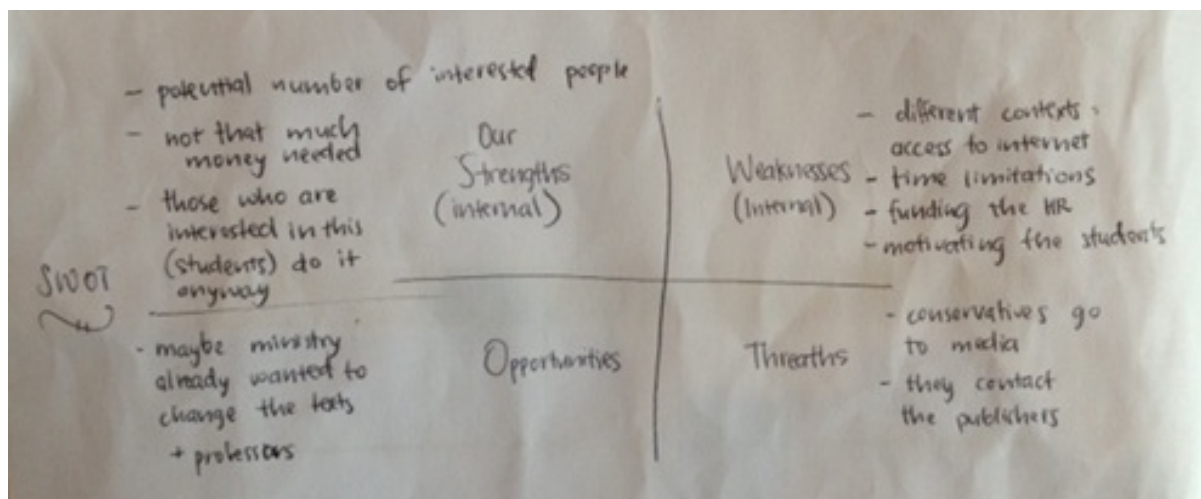 SWOT
- potential number of interested people
- not that much
money needed
- those who are
interested in this
(students) do it
anyway
Our
Strengths
(internal)
Weaknesses
(Internal)
- different contexts
access to internet
- time limitations
- funding the HR
- motivating the students
- maybe ministry
already wanted to
change the texts
+ professors
Opportunities
Threaths
- conservatives go
to media
- they contact
the publishers